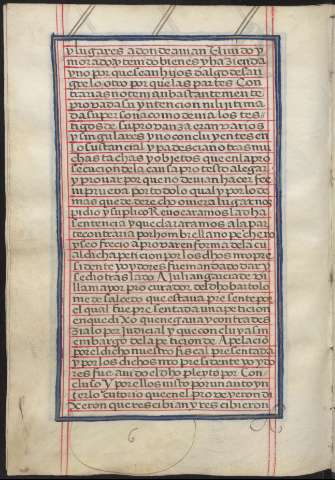 y lugares adonde avian thenido y
morado y tenido bienes y hazienda
y no por que sean hijos dalgo de san
gre lo otro por que las partes Con
trarias no tenian bastantemente
provada su yntencion ni lijitima
da su persona como devia los tes
tigos de su provanza eran varios
y singulares y no concluyentes en
lo sustancial y padescian otras mu
chas tachas y objetos que en la pro
secucion de la causa protesto alegar
y provar por que no devian hazer fee
ni prueva por todo lo qual y por lo de
mas que de derecho oviera lugar nos
pidio y suplico Revocaramos la dha
sentencia y que declaramos a la par
te contraria por hombre llano pechero
y se ofrecio a provar en forma de la cu
al dicha peticion por los dhos nro pre
sidente oydores fue mandado dar y
se dio traslado A Julian garcia de vi
llamayor procurador del dho bartolo
me de salcedo que estava presente por
el qual fue presentada una peticion
en que dixo que negava y contrade
zia lo perjudicial y que concluya sin
embargo de la peticion de Apelacion
por el dicho nuestro fiscal presentada
y por los dichos nro presidente y oydo
res fue avido el dho pleyto por Con
cluso Y por ellos visto por un auto yn
terlocutorio que en el proveyeron di
xeron que rescibian y rescibieron